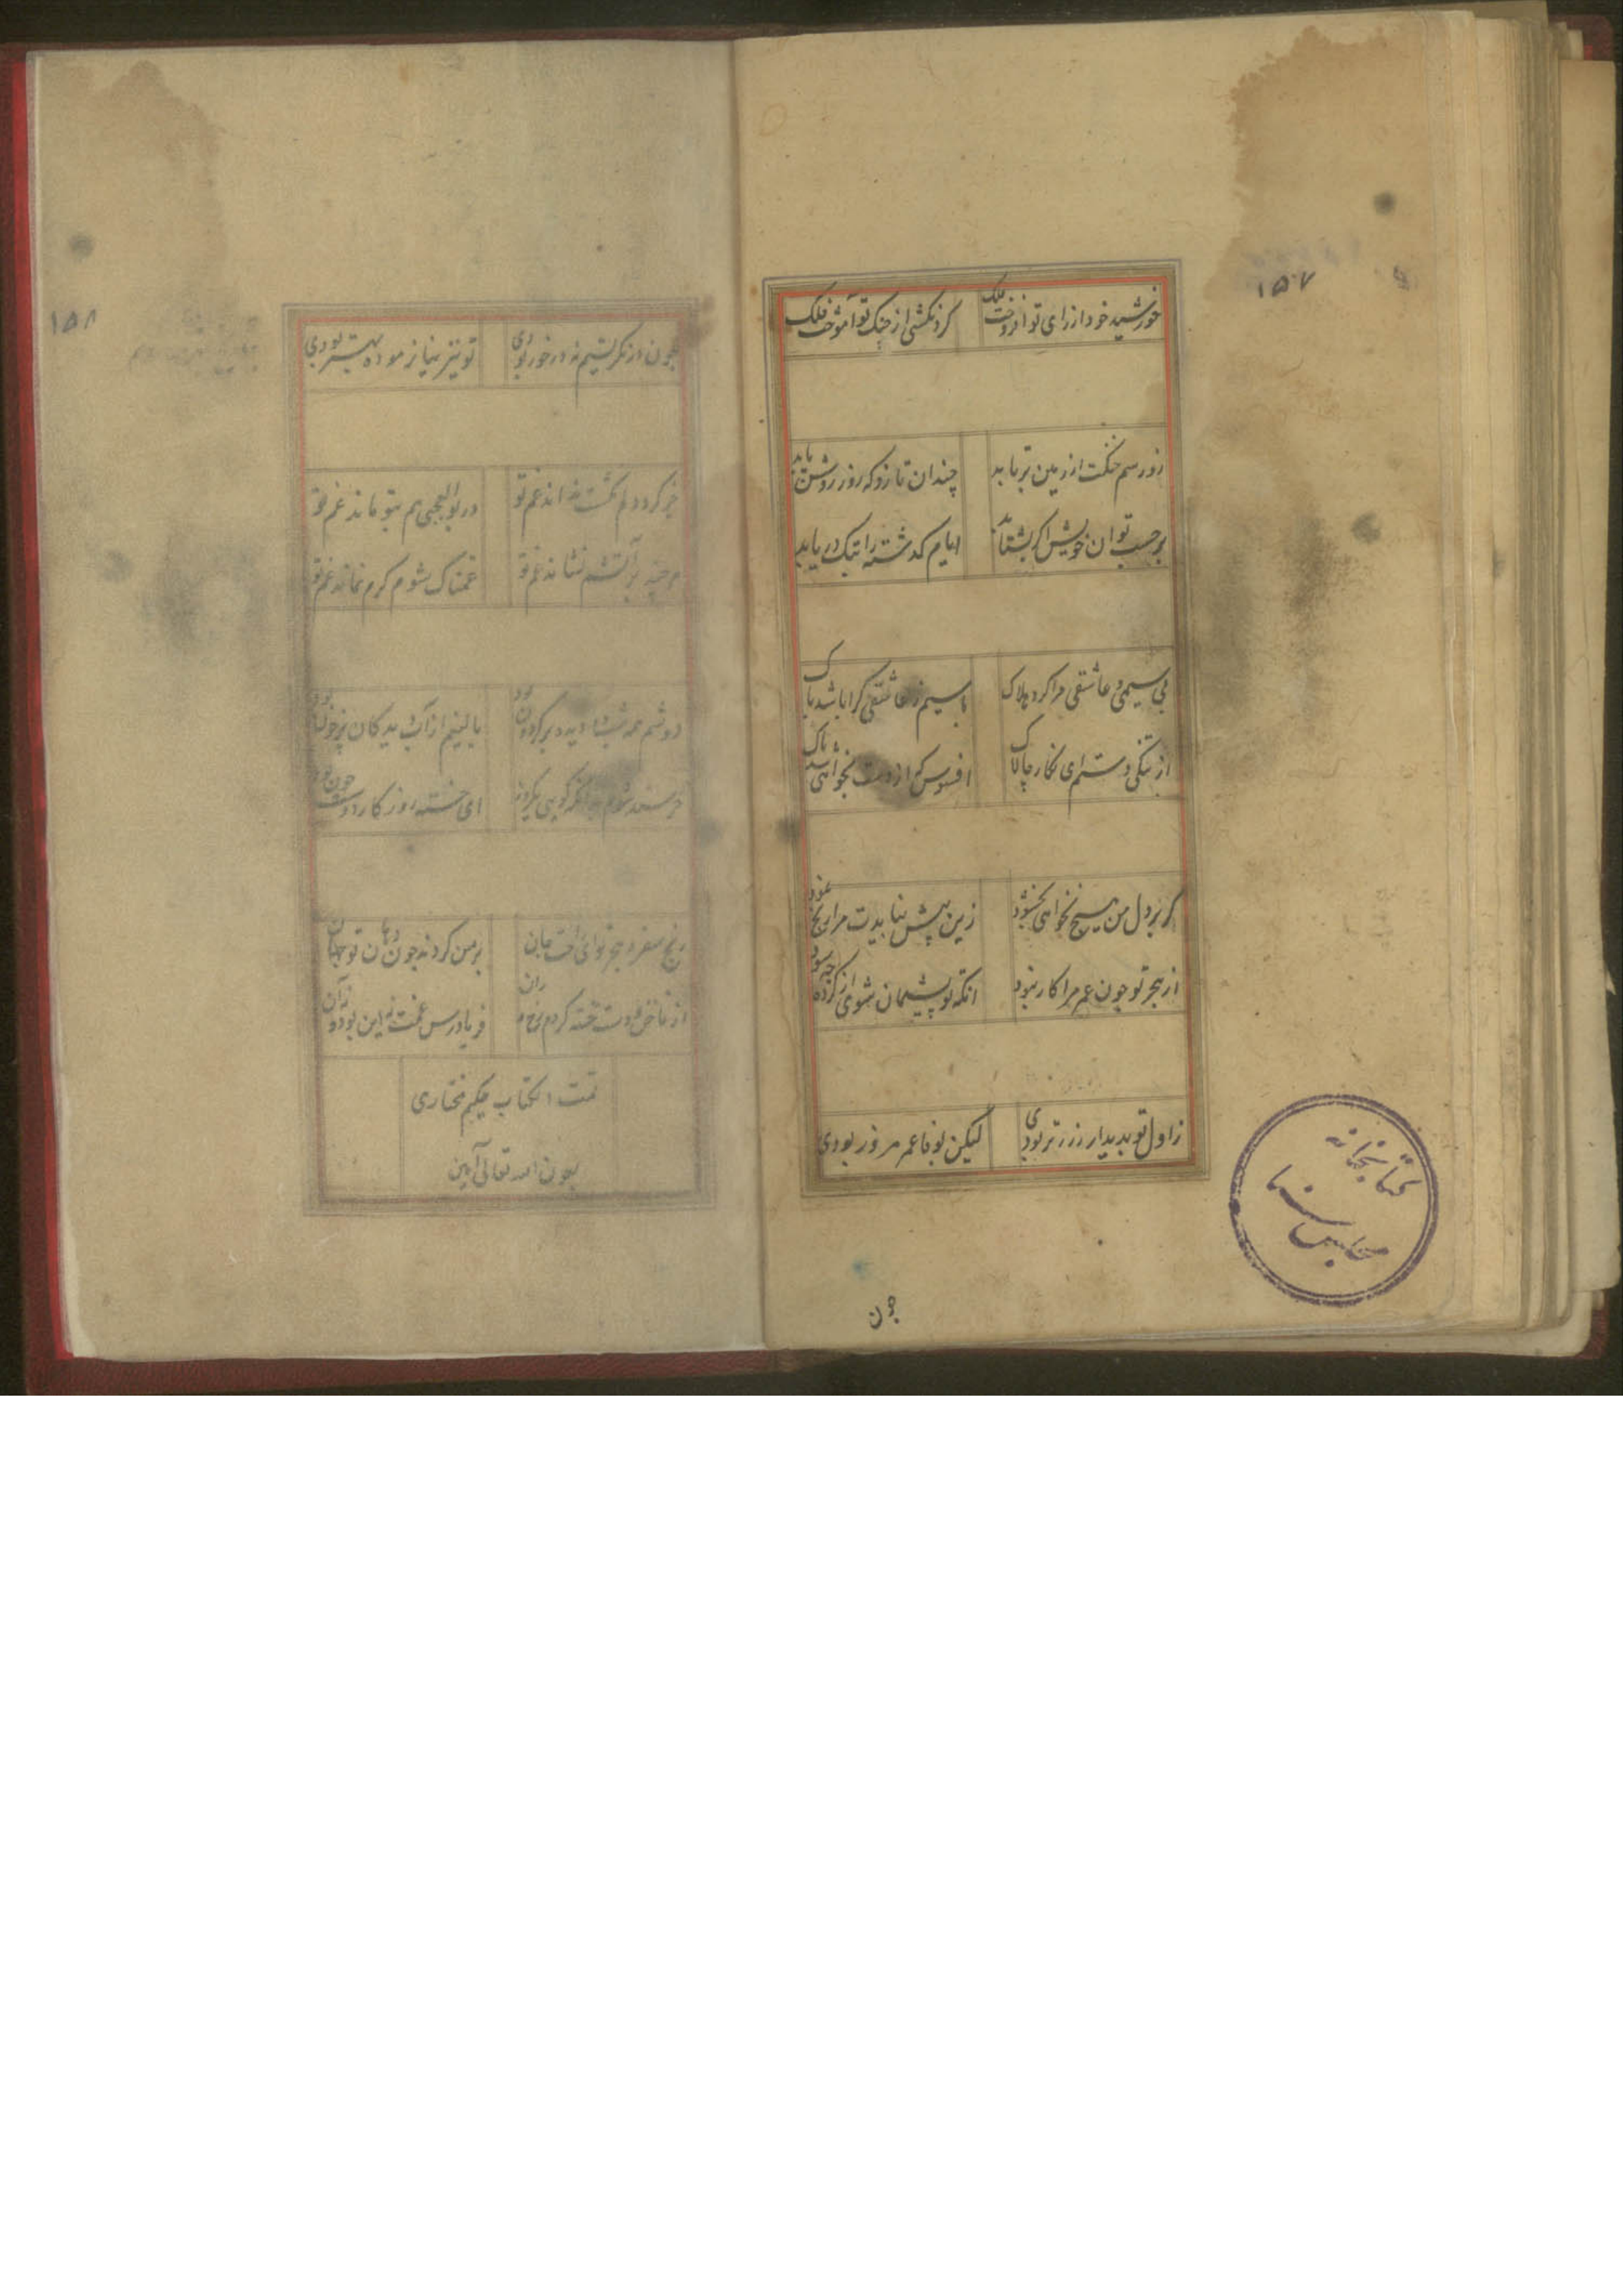 ۱۵۷
خورشید خود از رای تو افروخت فلک
کردنکشی از جنک تو آموخت فلک
زور سم خنکت از زمین برتابد
چندان تازو که روز روشن یابد
بر حسب توان خویش اکر بشتابد
ایام کذشته را تبک دریابد
بی سیمی و عاشقی مرا کرد هلاک
با سیم ز عاشقی کرا باشد باک
از تنکی دستم ای نکار چالاک
افسوس که از دست بخواهی شد پاک
کر بر دل من هیچ نخواهی بخشود
زین پیش نبایدت مرا رنج نمود
از هجر تو جون عمر مرا کار نبود
انکه تو پشیمان شوی از کرده چه سود
ز اول تو بدیدار ز زر تر بودی
لیکن بوفا عمر مزور بودی
جون
کتابخانه
مجلس سنا
۱۵۸
جون در نکرستیم نه در خور بودی
تو نیز نیازموده بهتر بودی
خر کرد دلم نداند غم تو
در بوالعجبی هم بتو ماند غم تو
هر چند بر آتشم نشاند غم تو
غمناک شوم کرم نماند غم تو
دوشم همه شب دیده بر کردون بود
بالینم از آب دیدکان پر خون بود
خرسند شوم کویی
ای خسته روزکار دوشت جون بود
رنج سفر و هجر تو ای افت جان
بر من کردند جون دهان تو جهان
از ناخن و دست خسته کردم رخ و ران
فریادرس غمت نه این بود و نه آن
تمت الکتاب حکیم مختاری
بعون الله تعالی آمین